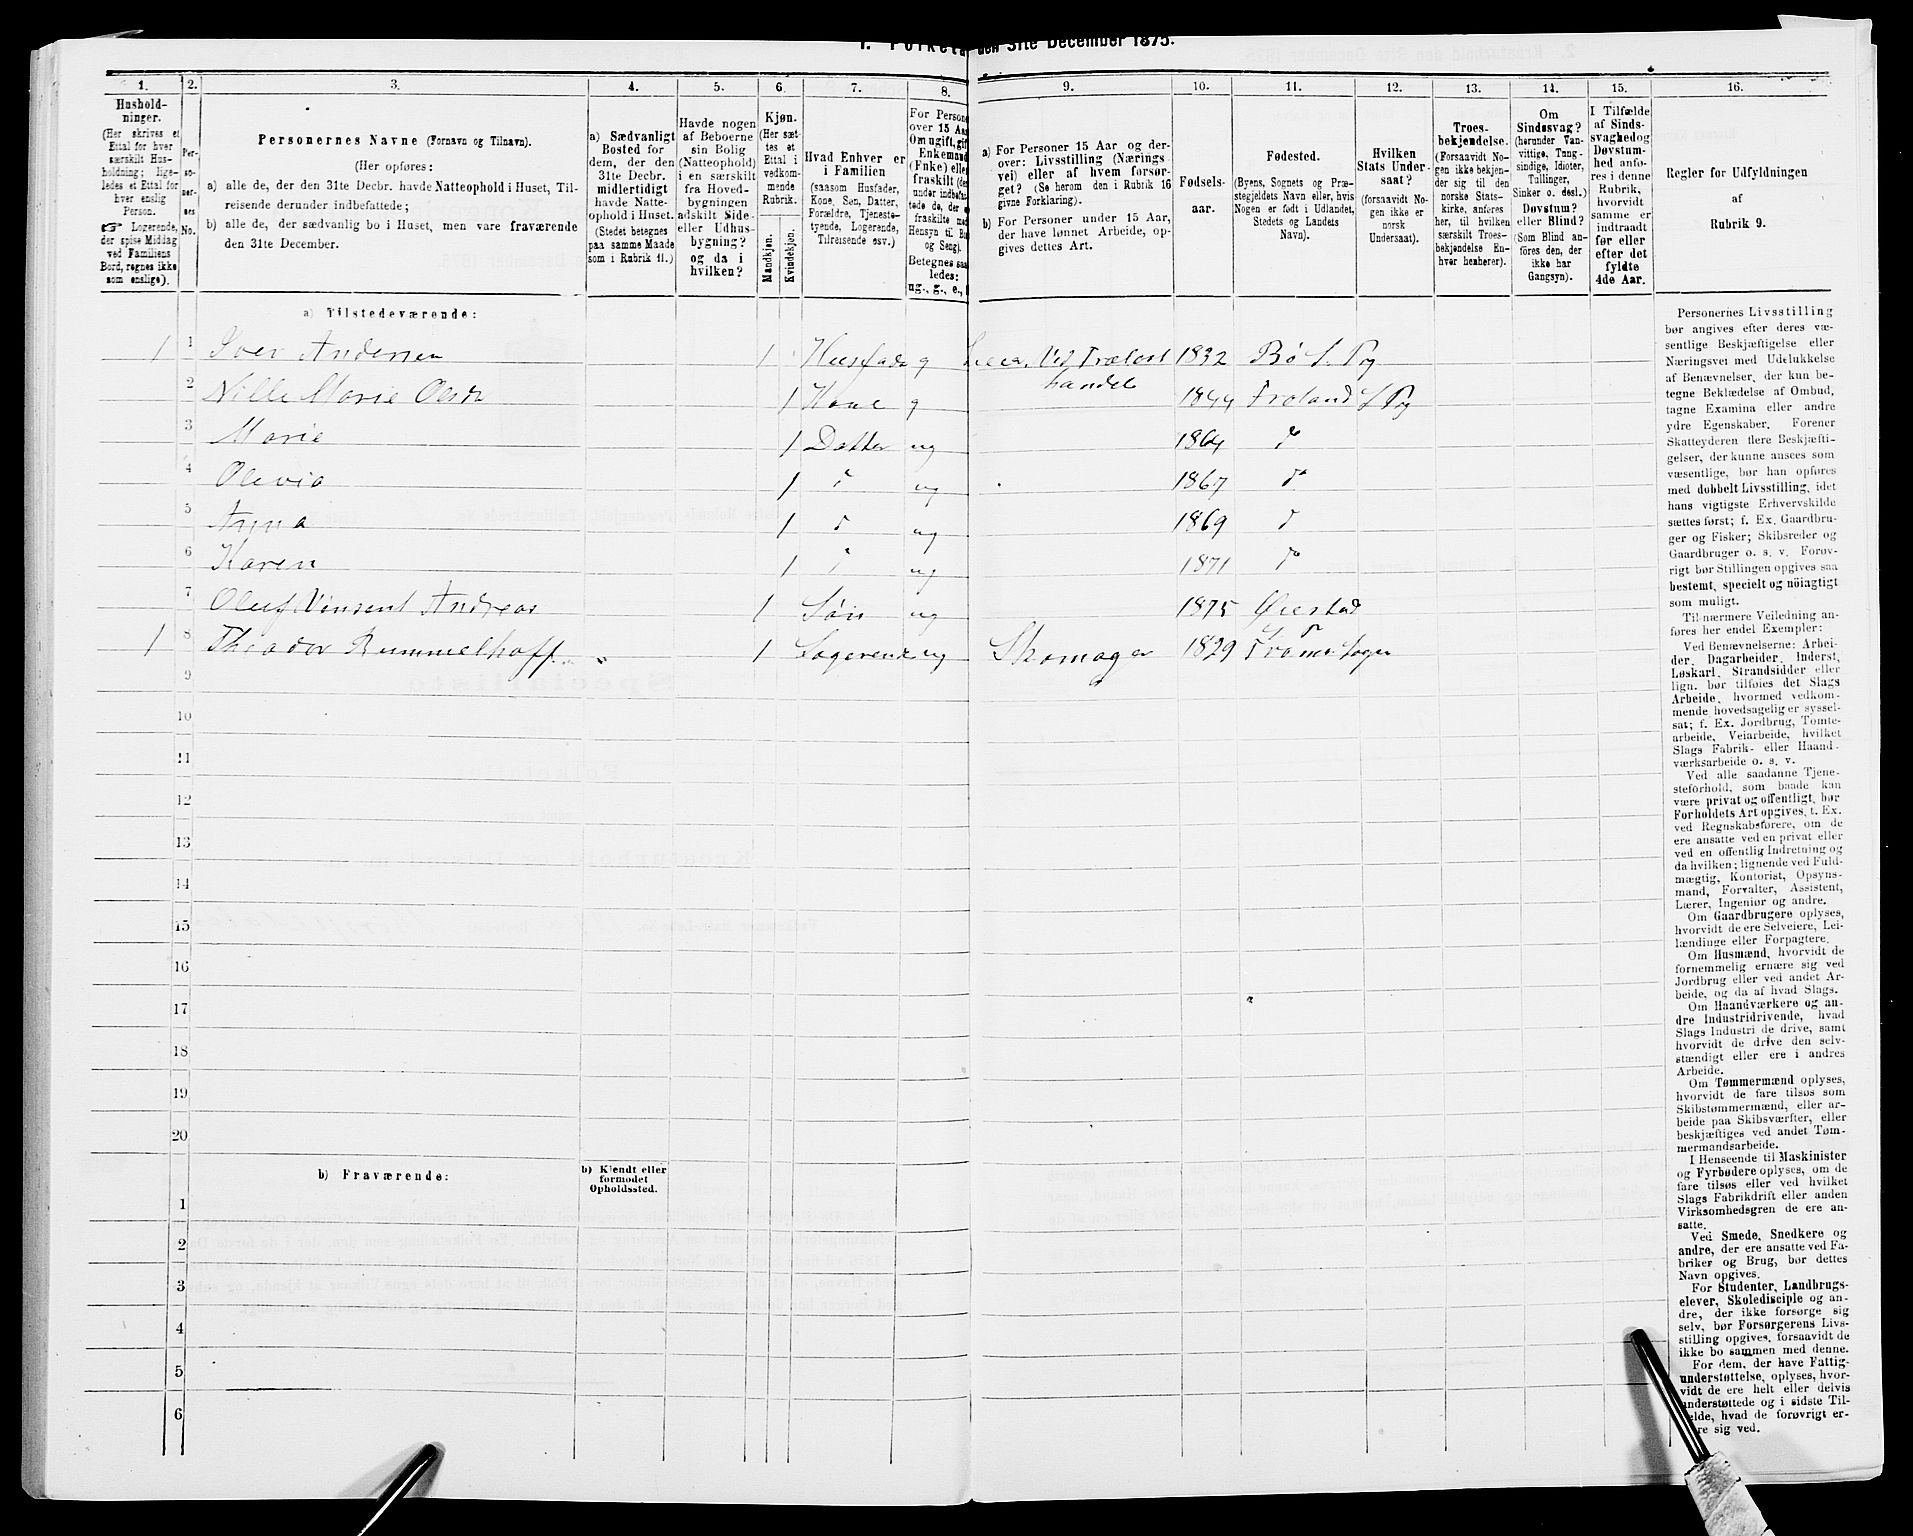 1. Folketæ den 31te December 1875.
1. 2. 3. 4. 5. 6. 7. 8. 9. 10. 11. 12. 13. 14. 15. 16.
Hushold-
ninger.
(Her skrives et
Ettal for hver
særskilt Hus-
holdning; lige-
ledes et Ettal for
hver enslig
Person.
Logerende,
der spise Middag
ved Familiens
Bord, regnes ikke
som enslige).
Per-
so-
ner-
nes
No.
Personernes Navne (Fornavn og Tilnavn).
(Her opføres:
a) alle de, der den 31te Decbr. havde Natteophold i Huset, Til-
reisende derunder indbefattede;
b) alle de, der sædvanlig bo i Huset, men vare fraværende
den 31te December.
a) Sædvanligt
Bosted for
dem, der den
31te Decbr.
midlertidigt
havde Natte-
ophold i Huset.
(Stedet betegnes
paa samme Maade
som i Rubrik 11.)
Havde nogen
af Beboerne
sin Bolig
(Natteophold)
i en særskilt
fra Hoved-
bygningen
adskilt Side-
eller Udhus-
bygning?
og da i
hvilken?
Kjøn.
(Her sæt-
tes et
Ettal i
vedkom-
mende
Rubrik.
Mandkjøn.
Kvindekjøn.
Hvad Enhver er
i Familien
(saasom Husfader,
Kone, Søn, Datter,
Forældre, Tjeneste-
tyende, Logerende,
Tilreisende osv.).
For Persone
over 15 Aa
Om ugift, gif
Enkemand
(Enke) elle
fraskilt (de
under indbefat-
tede de, der e
fraskilte me
Hensyn til Bo
og Seng).
Betegnes saa
ledes:
ug., g., e.,
a) For Personer 15 Aar og der-
over: Livsstilling (Nærings-
vei) eller af hvem forsør-
get? (Se herom den i Rubrik 16
givne Forklaring).
b) For Personer under 15 Aar,
der have lønnet Arbeide, op-
gives dettes Art.
Fødsels-
aar.
Fødested.
(Byens, Sognets og Præ-
stegjeldets Navn eller, hvis
Nogen er født i Udlandet,
Stedets og Landets
Navn).
Hvilken
Stats Under-
saat?
(forsaavidt No-
gen ikke er
norsk
Undersaat).
Troes-
bekjendelse.
(Forsaavidt No-
gen ikke bekjen-
der sig til den
norske Stats-
kirke, anføres
her, til hvilken
særskilt Troes-
bekjendelse En-
hver henhører).
Om
Sindssvag?
(herunder Van-
vittige, Tung-
sindige, Idioter,
Tullinger,
Sinker o. desl.)
Døvstum?
eller Blind?
(Som Blind an-
føres den, der
ikke har
Gangsyn).
I Tilfælde
af Sinds-
svaghed og
Døvstum-
hed anfø-
res i denne
Rubrik,
hvorvidt
samme er
indtraadt
før eller
efter det
fyldte
4de Aar.
Regler for Udfyldningen
af
Rubrik 9.
a) Tilstedeværende:
1 1 Iver Andersen 1 Husfader g Ved Trælast 1832 Bø S. Pg
handel
2 Nille Marie Olsdr 1 Kone g 1844 Froland S Pg
3 Marie 1 Datter ug 1864 do
4 Olevia 1 do ug 1867 do
5 Anna 1 do ug 1869 do
6 Karen 1 do ug 1871 do
7 Oluf Vinsent Andreas 1 Søn ug 1875 Øiestad
1 8 Theodor Rummelhoff 1 Logerende ug Skomager 1829 Tromø Sogn
9
10
11
12
13
14
15
16
17
18
19
20
b) Fraværende:
b) Kjendt eller
formodet
Opholdssted.
1
2
3
4
5
6
Personernes Livsstilling
bør angives efter deres væ-
sentlige Beskjæftigelse eller
Næringsvei med Udelukkelse
af Benævnelser, der kun be-
tegne Beklædelse af Ombud,
tagne Examina eller andre
ydre Egenskaber. Forener
Skatteyderen flere Beskjæfti-
gelser, der kunne ansees som
væsentlige, bør han opføres
med dobbelt Livsstilling, idet
hans vigtigste Erhvervskilde
sættes først; f. Ex. Gaardbru-
ger og Fisker; Skibsreder og
Gaardbruger o. s. v. Forøv-
rigt bør Stillingen opgives saa
bestemt, specielt og nöiagtigt
som muligt.
Til nærmere Veiledning an-
føres her endel Exempler:
Ved Benævnelserne: Arbei-
der, Dagarbeider, Inderst,
Løskarl, Strandsidder eller
lign. bør tilføies det Slags
Arbeide, hvormed vedkom-
mende hovedsagelig er syssel-
sat; f. Ex. Jordbrug, Tomte-
arbeide, Veiarbeide, hvilket
Slags Fabrik- eller Haand-
værksarbeide o. s. v.
Ved alle saadanne Tjene-
steforhold, som baade kan
være privat og offentligt, bør
Forholdets Art opgives, t. Ex.
ved Regnskabsførere, om de
ere ansatte ved en privat eller
ved en offentlig Indretning og
da hvilken; lignende ved Fuld-
mægtig, Kontorist, Opsyns-
mand, Forvalter, Assistent,
Lærer, Ingeniør og andre.
Om Gaardbrugere oplyses,
hvorvidt de ere Selveiere, Lei-
lændinge eller Forpagtere.
Om Husmænd, hvorvidt de
fornemmelig ernære sig ved
Jordbrug eller ved andet Ar-
beide, og da af hvad Slags.
Om Haandværkere og an-
dre Industridrivende, hvad
Slags Industri de drive, samt
hvorvidt de drive den selv-
stændigt eller ere i andres
Arbeide.
Om Tømmermænd oplyses,
hvorvidt de fare tilsøs som
Skibstømmermænd, eller ar-
beide paa Skibsværfter, eller
beskjæftiges ved andet Tøm-
mermandsarbeide.
I Henseende til Maskinister
og Fyrbødere oplyses, om de
fare tilsøs eller ved hvilket
Slags Fabrikdrift eller anden
Virksomhedsgren de ere an-
satte.
Ved Smede, Snedkere og
andre, der ere ansatte ved Fa-
briker og Brug, bør dettes
Navn opgives.
For Studenter, Landbrugs-
elever, Skoledisciple og an-
dre, der ikke forsørge sig
selv, bør Forsørgerens Livs-
stilling opgives, forsaavidt de
ikke bo sammen med denne.
For dem, der have Fattig-
understøttelse, oplyses, hvor-
vidt de ere helt eller delvis
understøttede og i sidste Til-
fælde, hvad de forøvrigt er-
nære sig ved.